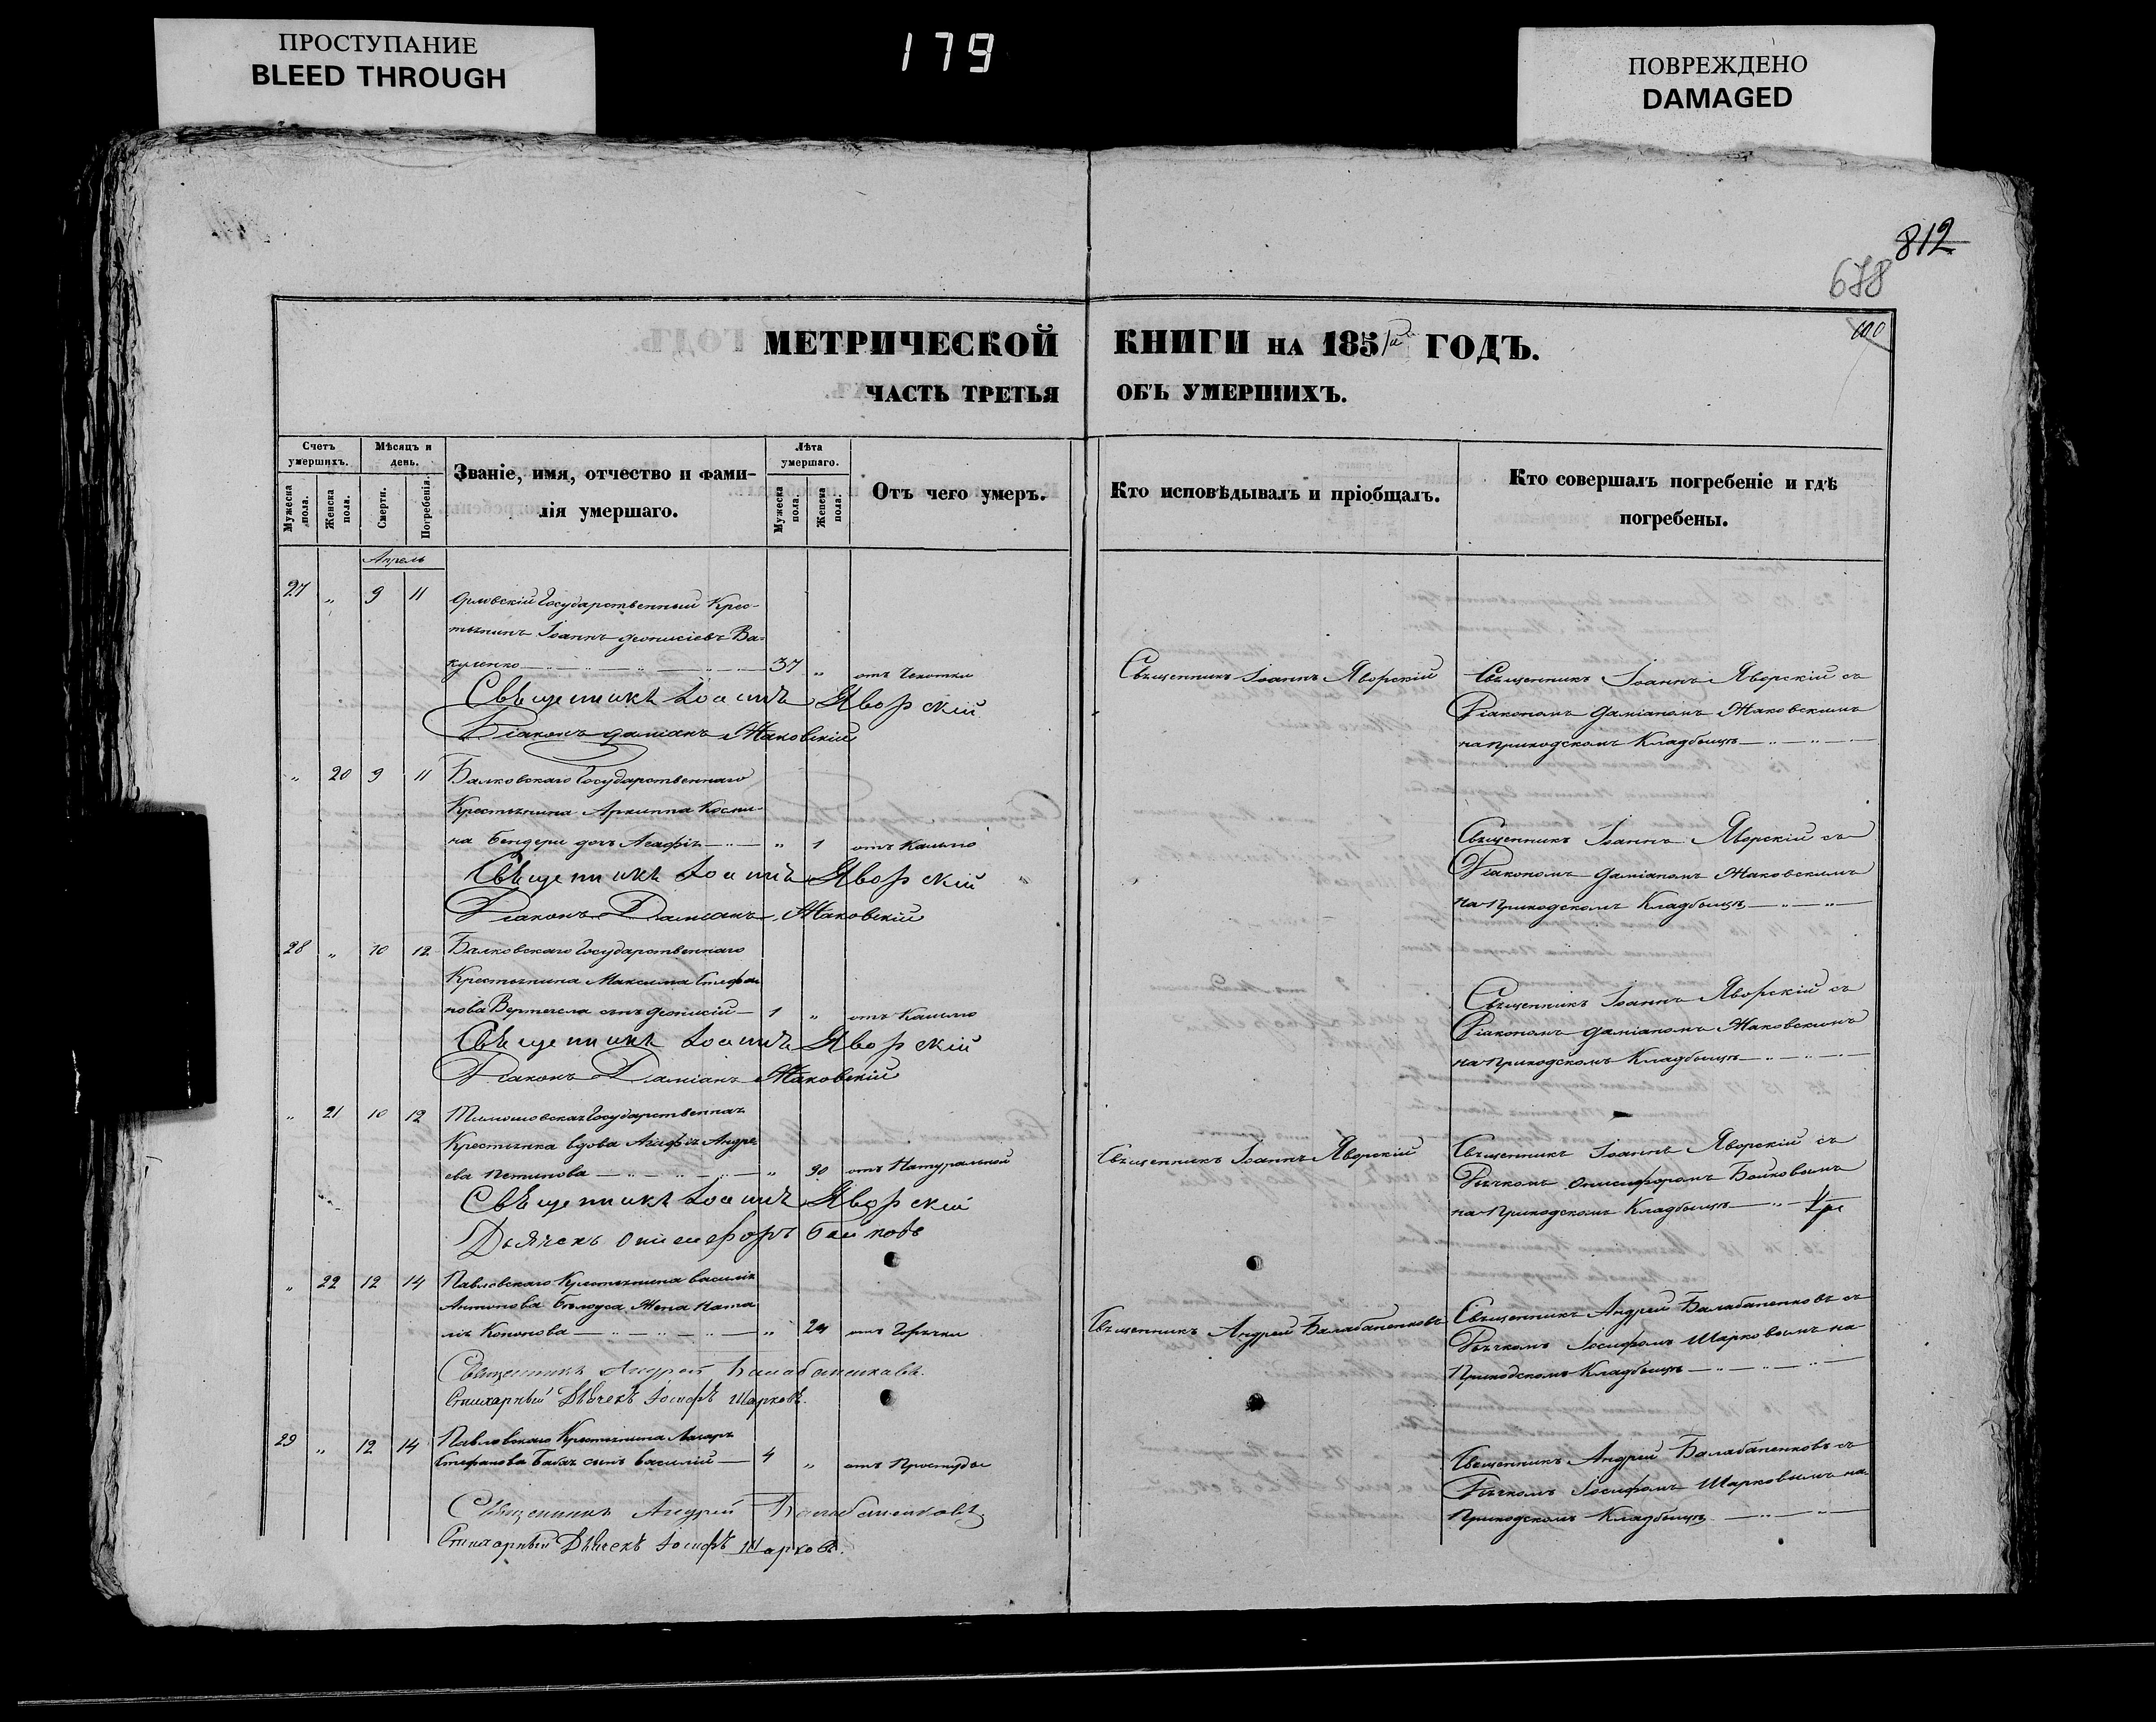 ПРОСТУПАНИЕ
BLEED THROUGH
179
ПОВРЕЖДЕНО
DAMAGED
812
678
600
МЕТРИЧЕСКОЙ КНИГИ НА 1851 ГОДЪ.
ЧАСТЬ ТРЕТЬЯ ОБЪ УМЕРШИХЪ.
Счетъ умершихъ.
Мужеска пола.
Женска пола.
Мѣсяцъ и день.
Смерти.
Погребенія.
Званіе, имя, отчество и фами-
лія умершаго.
Лѣта умершаго.
Мужеска пола.
Женска пола.
Отъ чего умеръ.
Кто исповѣдывалъ и пріобщалъ.
Кто совершалъ погребеніе и гдѣ
погребены.
Апрель
27 „ 9 11 Орловскій Государственный Крес-
тянинъ Іоаннъ Діонисіевъ Ва-
куленко 37 „ отъ Чахотки
Священникъ Іоаннъ Яворскій
Священникъ Іоаннъ Яворскій съ
Діакономъ Даміаномъ Жаковскимъ
на приходскомъ Кладбищѣ
Свѣщенникъ Іоаннъ Яворскій
Діаконъ Даміанъ Жаковскій
„ 20 9 11 Балковскаго Государственнаго
Крестьянина Архиппа Косми-
на Бендери дочь Агафія „ 1 отъ Кашлю
Священникъ Іоаннъ Яворскій съ
Діакономъ Даміаномъ Жаковскимъ
на Приходскомъ Кладбищѣ
Свѣщенникъ Іоаннъ Яворскій
Діаконъ Даміанъ Жаковскій
28 „ 10 12 Балковскаго Государственнаго
Крестьянина Максима Стефа-
нова Вертегела сынъ Діонисій 1 „ отъ Кашлю
Священникъ Іоаннъ Яворскій съ
Діакономъ Даміаномъ Жаковскимъ
на Приходскомъ Кладбищѣ
Свѣщенникъ Іоаннъ Яворскій
Діаконъ Даміанъ Жаковскій
„ 21 10 12 Государственная
Крестьянка вдова Агафія Андре
ева „ 90 отъ Натуральной
Священникъ Іоаннъ Яворскій
Священникъ Іоаннъ Яворскій съ
Дячкомъ Онисифоромъ Бойковымъ
на Приходскомъ Кладбищѣ
Свѣщенникъ Іоаннъ Яворскій
Дьячекъ Онисифоръ Бойковъ
„ 22 12 14 Павловскаго Крестьянина Василія
Антонова Бѣлоуса Жена Ната
лія Кононова „ 24 отъ Горячки
Священникъ Андрей Балабаненковъ
Священникъ Андрей Балабаненковъ съ
Дячкомъ Іосифомъ Шарковымъ на
Приходскомъ Кладбищѣ
Священникъ Андрей Балабаненковъ.
Стихарный Дьячекъ Іосифъ Шарковъ.
29 „ 12 14 Павловскаго Крестьянина Лазаря
Стефанова Бабак сынъ Василій 4 „ отъ Простуды
Священникъ Андрей Балабаненковъ съ
Дячкомъ Іосифомъ Шарковымъ на
Приходскомъ Кладбищѣ
Священникъ Андрей Балабаненковъ
Стихарный Дьячекъ Іосифъ Шарковъ.